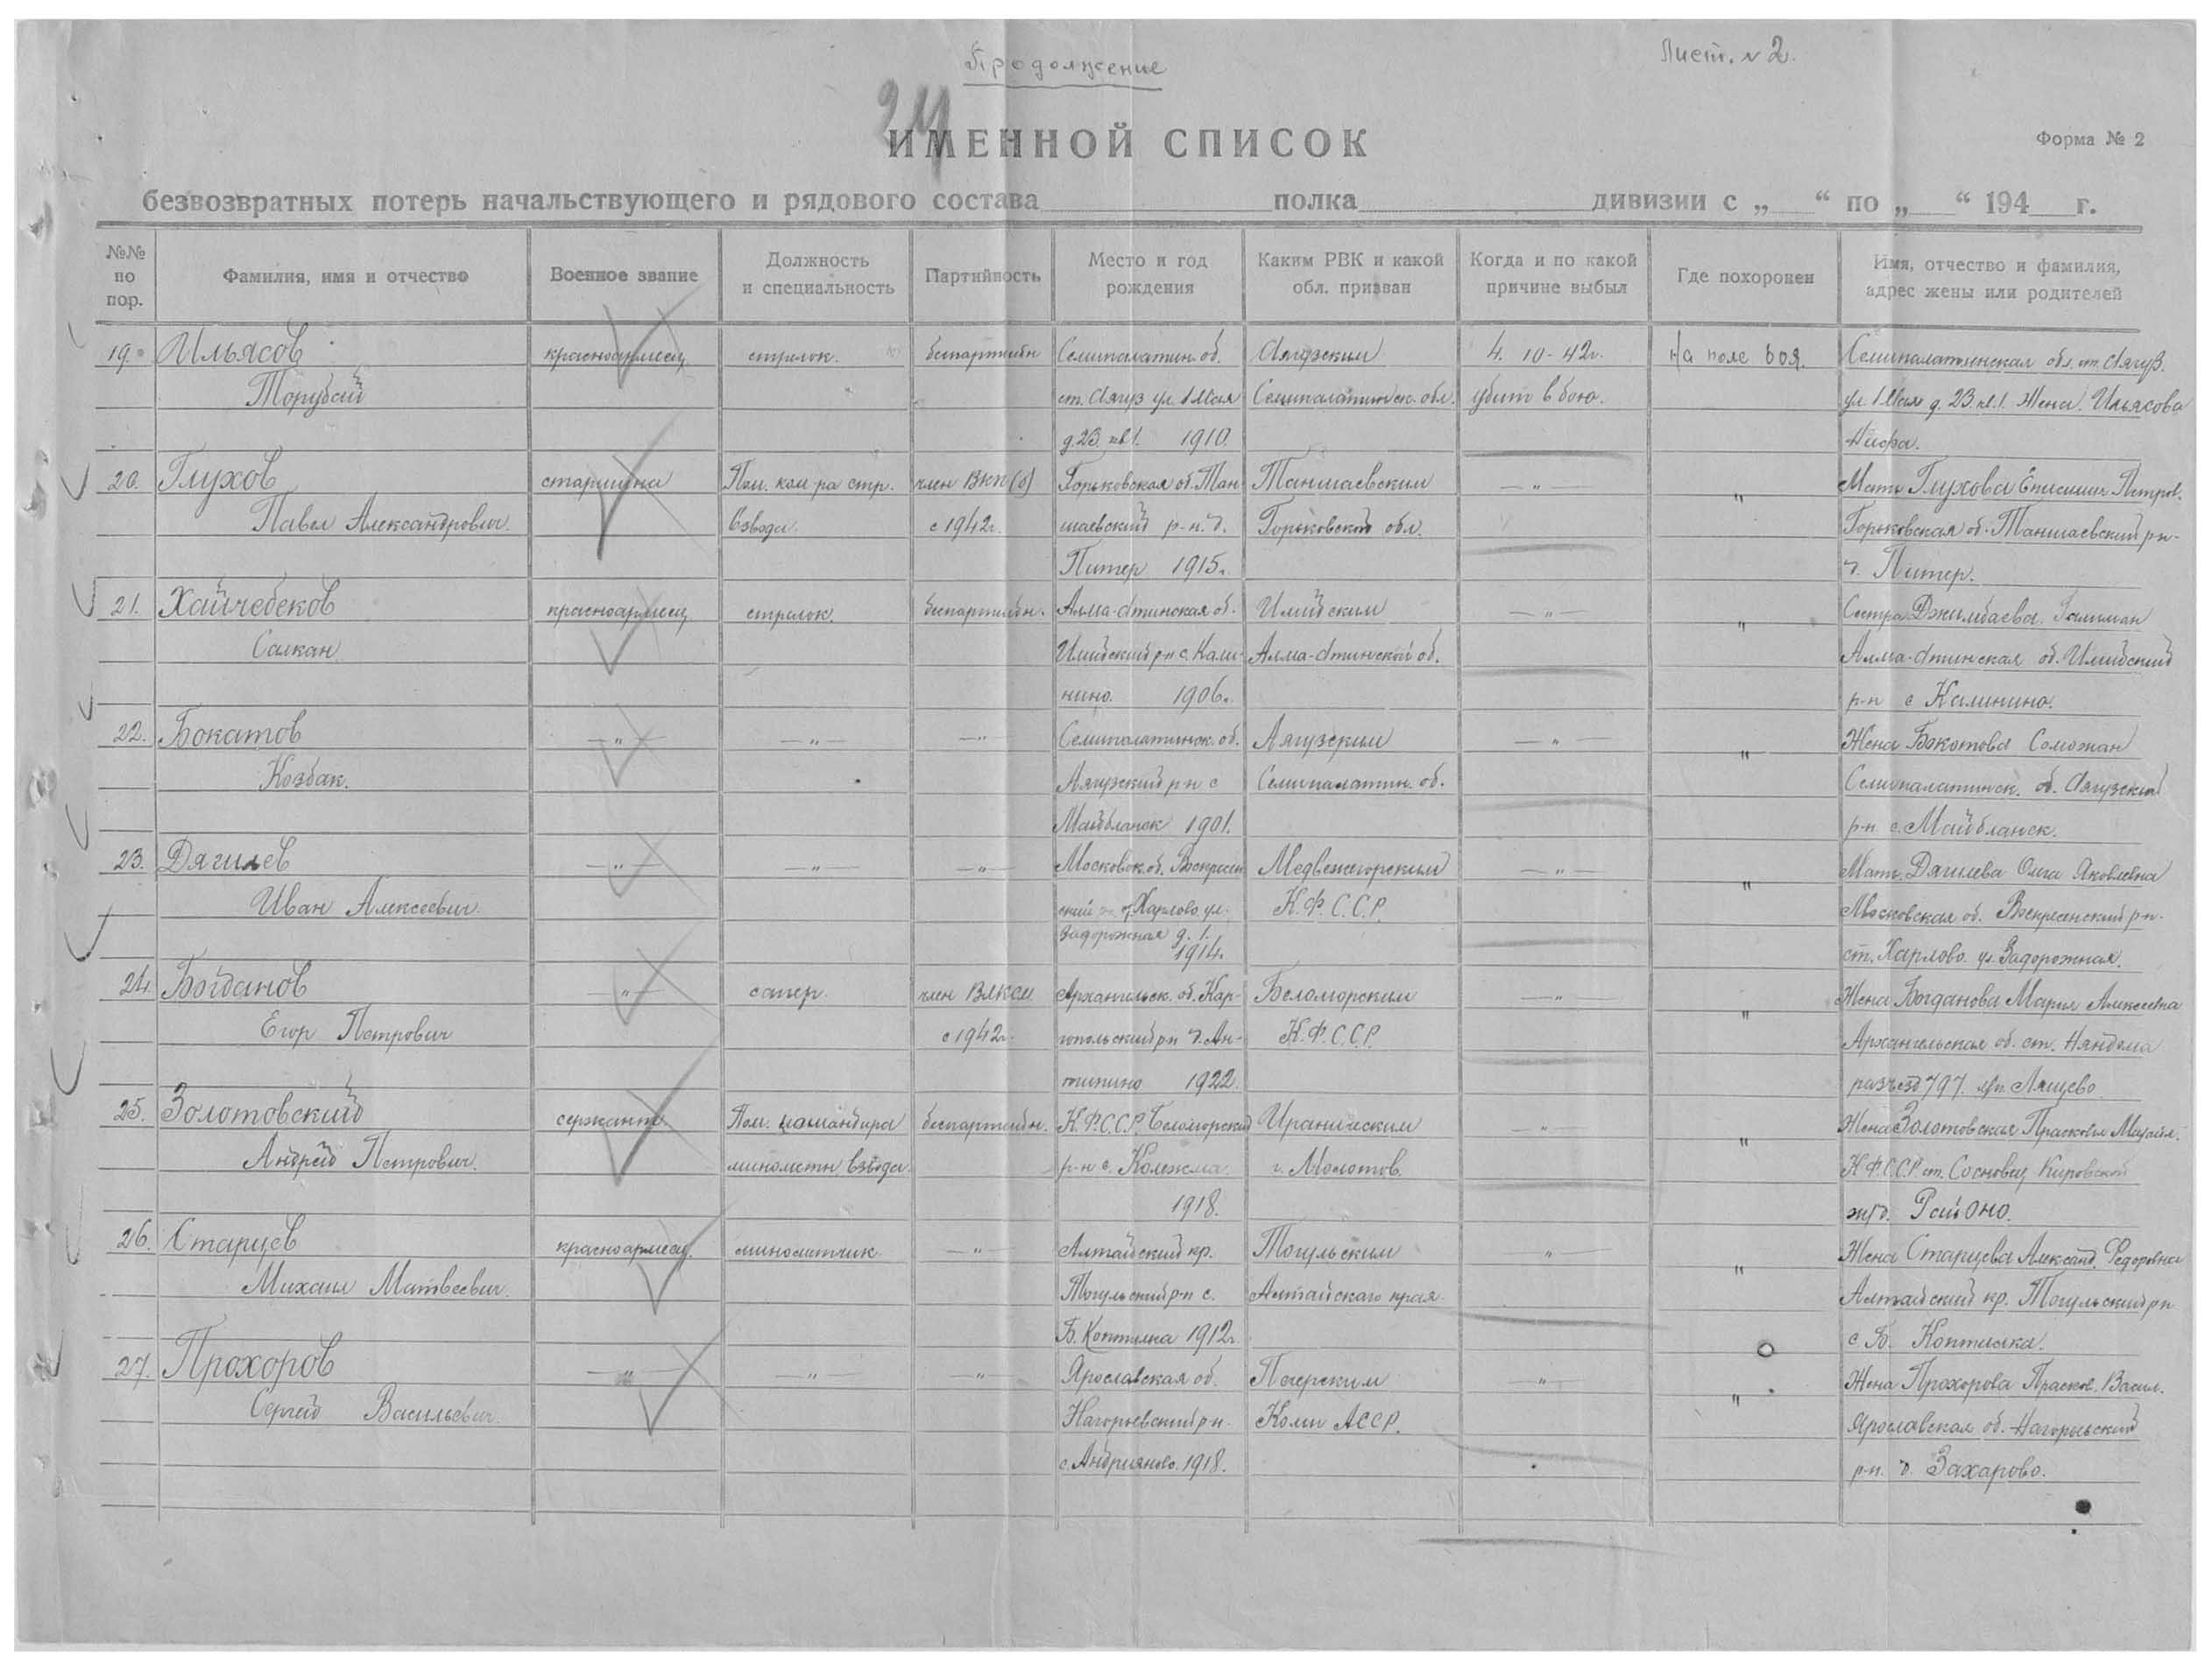 Продолжение
Лист. № 2.
24
ИМЕННОЙ СПИСОК
Форма № 2
безвозвратных потерь начальствующего и рядового состава полка дивизии с „ “ по „ “ 194 г.
№№ по пор. Фамилия, имя и отчество Военное звание Должность и специальность Партийность Место и год рождения Каким РВК и какой обл. призван Когда и по какой причине выбыл Где похоронен Имя, отчество и фамилия, адрес жены или родителей
19. Ильясов красноармеец стрелок. беспартийн Семипалатин. об. Аягузским 4. 10-42г. На поле боя. Семипалатинская обл. ст. Аягуз.
Торубай ст. Аягуз ул. 1 Мая Семипалатинск. обл. убит в бою. ул. 1 Мая д. 23. кв. 1. Жена. Ильясова
д. 23. кв 1. 1910.
20. Глухов старшина Пом. ком-ра стр. член ВКП(б) Горьковская об. Тан Таншаевским —„— „ Мать Глухова Петров.
Павел Александрович. взвода. с 1942г. шаевский р-н. д. Горьковской обл. Горьковская об. Таншаевский рн-
Питер 1915г. д. Питер.
21. Хайчебеков красноармеец стрелок. беспартийн. Алма-Атинская об. Илийским —„— „ Сестра Джимбаева.
Салкан Илийский рн с. Кали- Алма-Атинской об. Алма-Атинская об. Илийский
нино. 1906г. р-н с Калинино.
22. Бокатов —„— —„— —„ Семипалатинск. об. Аягузским —„— „ Жена Бокотова Соможан
Козбак. Аягузский рн с Семипалатин. об. Семипалатинск. об. Аягузский
Майбланск 1901. р-н. с. Майбланск.
23. Дягилев —„— —„— —„— Московск. об. Воскресен Медвежегорским —„— „ Мать. Дягилева Ольга Яковлевна
Иван Алексеевич. ский Харлово. ул. К.Ф.С.С.Р. Московская об. Воскресенский рн.
Задорожная д. 1. 1914г. ст. Харлово. ул. Задорожная.
24. Богданов —„— сапер. член ВЛКСМ Архангельск. об. Кар- Беломорским —„— „ Жена Богданова Мария Алексеевна
Егор Петрович с 1942г. гопольский рн д. Ан- К.Ф.С.С.Р. Архангельская об. ст. Няндома
типино 1922. разъезд 797. Лящево.
25. Золотовский сержант Пом. командира беспартийн. К.Ф.С.С.Р. Беломорский —„— „ Жена Золотовская Прасковья Михайл.
Андрей Петрович. минометн. взвода. р-н с. Колежма. г. Молотов. К.Ф.С.С.Р. ст. Сосновец Кировской
1918. ж/д. РайОНО.
26. Старцев красноармеец. минометчик. —„— Алтайский кр. Тогульским „— „ Жена Старцева Александ. Федоровна
Михаил Матвеевич. Тогульский р-н с. Алтайскаго края. Алтайский кр. Тогульский рн
Б. Коптелка 1912г. с Б. Коптелка.
27. Прохоров —„— —„— —„— Ярославская об. Печерским —„— „ Жена Прохорова Прасков. Васил.
Сергей Васильевич. Нагорьевский рн. Коми АССР. Ярославская об. Нагорьевский
с. Андрияново. 1918. р-н. д. Захарово.